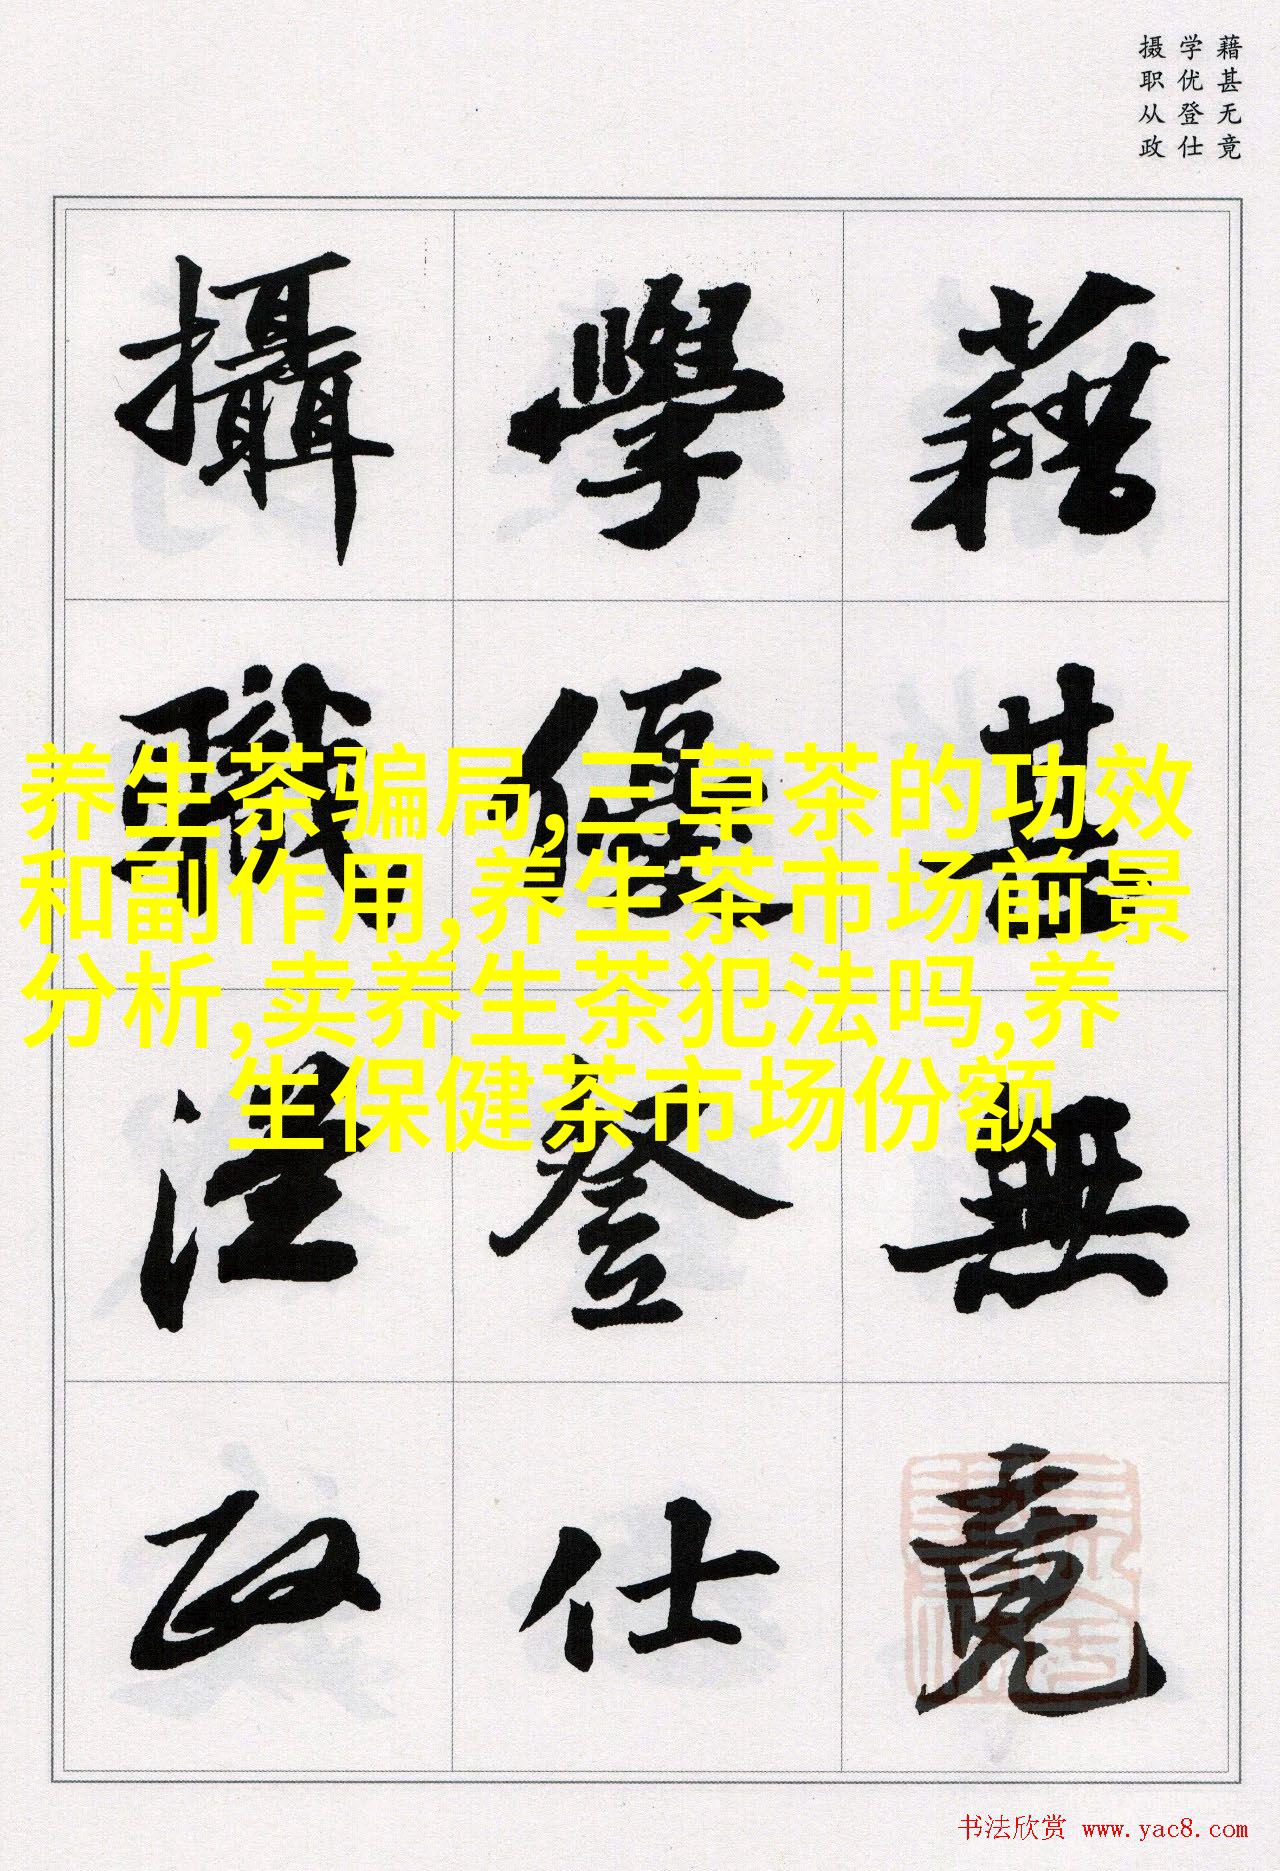 藉甚无竟
学优登仕
摄职从政
藉甚無竟
學優登仕
攝職從政
养生茶骗局,三草茶的功效
和副作用,养生茶市场前景
分析,卖养生茶犯法吗,养
生保健茶市场份额
书法欣赏 www.yac8.com